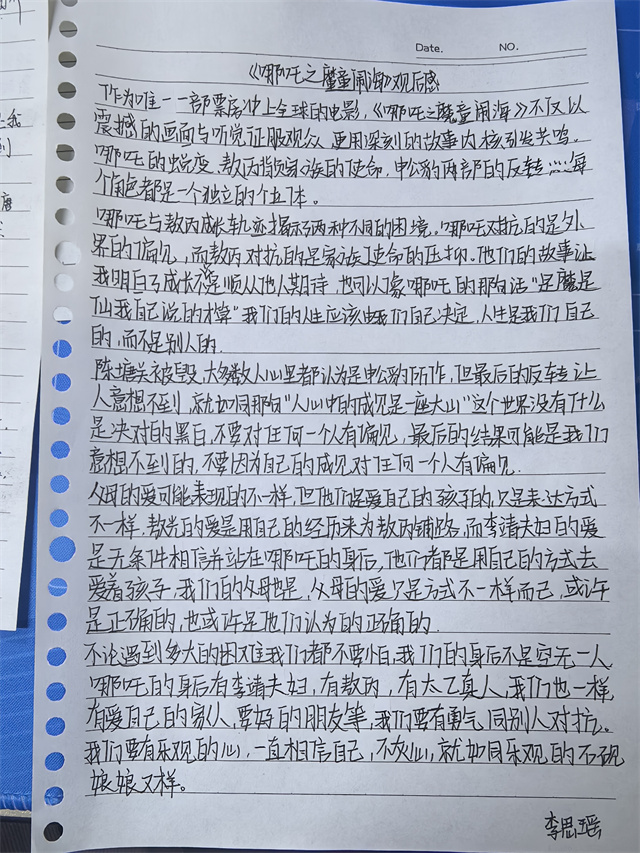 Date. NO.
《哪吒之魔童闹海》观后感
作为唯一一部票房冲上全球的电影,《哪吒之魔童闹海》不仅以
震撼的画面与听觉征服观众,更用深刻的故事内核引发共鸣。
哪吒的蜕变,敖丙背负家族的使命,申公豹两部的反转……每
个角色都是一个独立的个体。
哪吒与敖丙成长轨迹揭示了两种不同的困境。哪吒对抗的是外
界的偏见,而敖丙对抗的是家族使命的压抑。他们的故事让
我明白了成长不是顺从他人期待,也可以像哪吒的那句话“是魔是
仙我自己说的才算”我们的人生应该由我们自己决定,人生是我们自己
的,而不是别人的.
陈塘关被毁,大多数人心里都认为是申公豹所作,但最后的反转让
人意想不到,就如同那句“人心中的成见是一座大山”这个世界没有什么
是决对的黑白,不要对任何一个人有偏见,最后的结果可能是我们
意想不到的,不要因为自己的成见对任何一个人有偏见.
父母的爱可能表现的不一样,但他们是爱自己的孩子的,只是表达方式
不一样,敖光的爱是用自己的经历来为敖丙铺路,而李靖夫妇的爱
是无条件相信并站在哪吒的身后,他们都是用自己的方式去
爱着孩子,我们的父母也是,父母的爱只是方式不一样而已,或许
是正确的,也或许是他们认为的正确的.
不论遇到多大的困难我们都不要怕,我们的身后不是空无一人,
哪吒的身后有李靖夫妇,有敖丙,有太乙真人,我们也一样,
有爱自己的家人,要好的朋友等,我们要有勇气同别人对抗。
我们要有乐观的心,一直相信自己,不灰心,就如同乐观的石矶
娘娘又样。
李思瑶